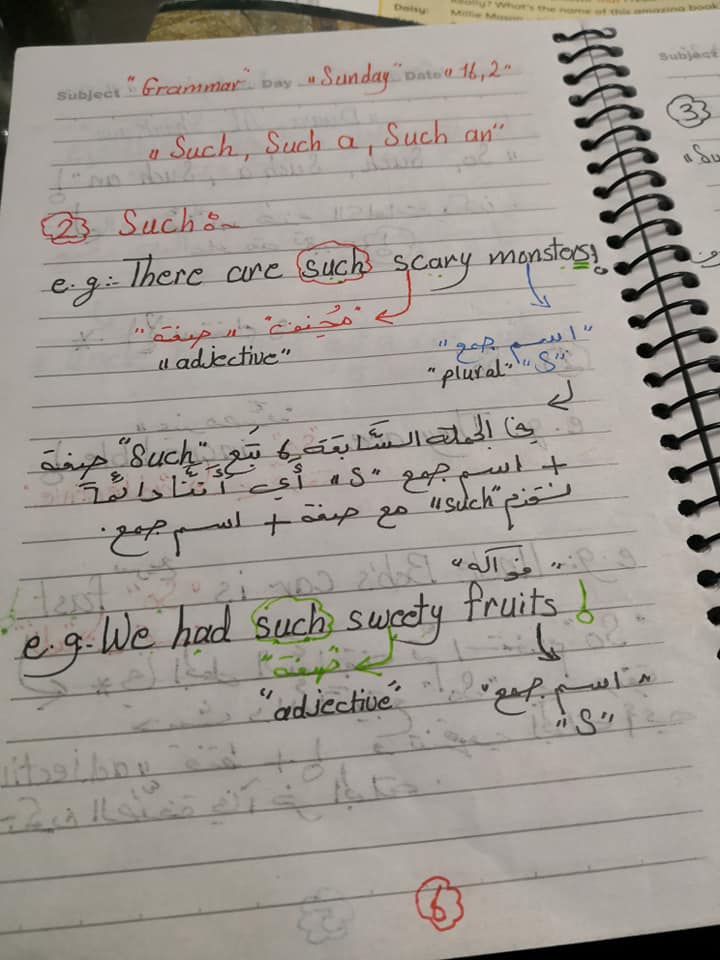 Daisy: Really? What's the name of this amazing book
Millie Mason
Subject "Grammar" Day "Sunday" Date "16,2"
"Such, Such a, Such an"
2 Such:-
e.g:- There are such scary monsters!
"مُخيفة" "صفة"
"adjective"
"اسم جمع"
"plural" "S"
في الجملة السَّابقة، تَبِع "Such" صفة
+ اسم جمع "S" أي أَنَّنا دائمًا
نستخدم "such" مع صفة + اسم جمع.
"فواكه"
e.g:- We had such sweety fruits!
"صفة"
"adjective"
"اسم جمع"
"S"
6
Subject
3
"Su